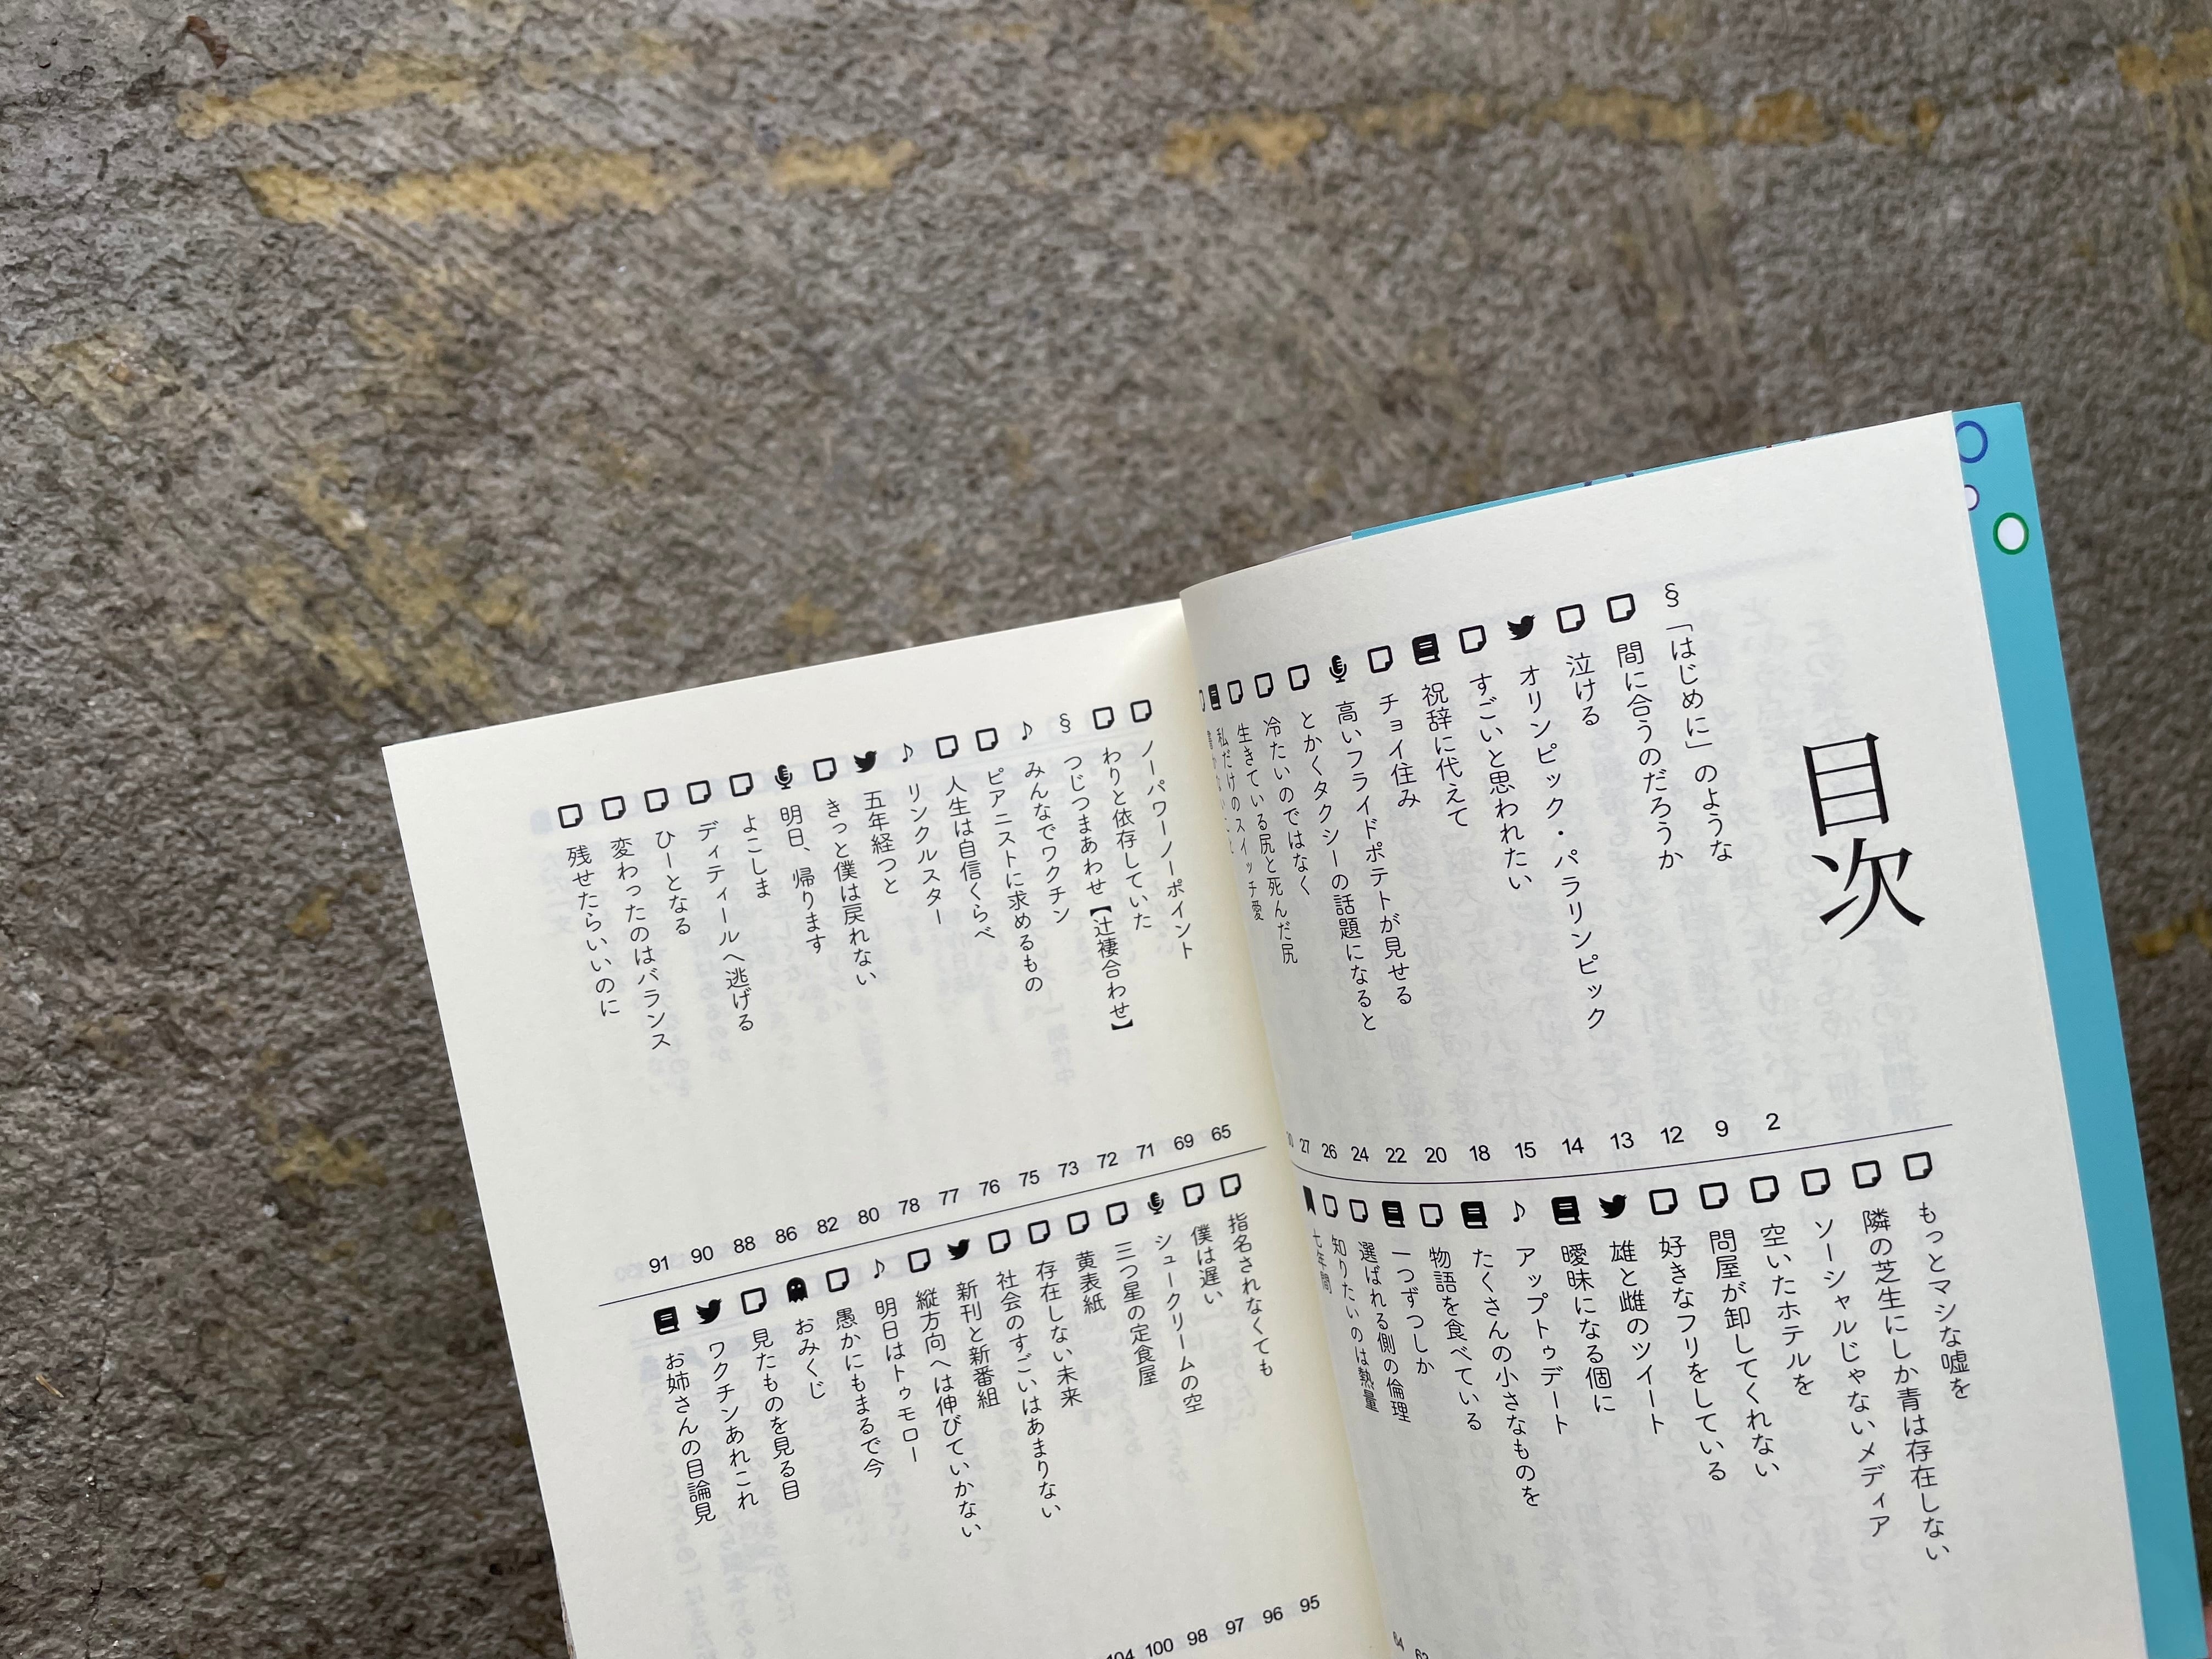 目次
§「はじめに」のような 2
間に合うのだろうか 9
泣ける 12
オリンピック・パラリンピック 13
すごいと思われたい 14
祝辞に代えて 15
チョイ住み 18
高いフライドポテトが見せる 20
とかくタクシーの話題になると 22
冷たいのではなく 24
生きている尻と死んだ尻 26
私だけのスイッチ愛 27
もっとマシな嘘を
隣の芝生にしか青は存在しない
ソーシャルじゃないメディア
空いたホテルを
問屋が卸してくれない
好きなフリをしている
雄と雌のツイート
曖昧になる個に
♪ アップトゥデート
たくさんの小さなものを
物語を食べている
一つずつしか
選ばれる側の倫理
知りたいのは熱量
七年間
ノーパワーノーポイント 65
わりと依存していた 69
§ つじつまあわせ【辻褄合わせ】 71
♪ みんなでワクチン 72
ピアニストに求めるもの 73
人生は自信くらべ 75
♪ リンクルスター 76
五年経つと 77
きっと僕は戻れない 78
明日、帰ります 80
よこしま 82
ディティールへ逃げる 86
ひーとなる 88
変わったのはバランス 90
残せたらいいのに 91
指名されなくても 95
僕は遅い 96
シュークリームの空 97
三つ星の定食屋 98
黄表紙 100
存在しない未来 104
社会のすごいはあまりない
新刊と新番組
縦方向へは伸びていかない
♪ 明日はトゥモロー
愚かにもまるで今
おみくじ
見たものを見る目
ワクチンあれこれ
お姉さんの目論見